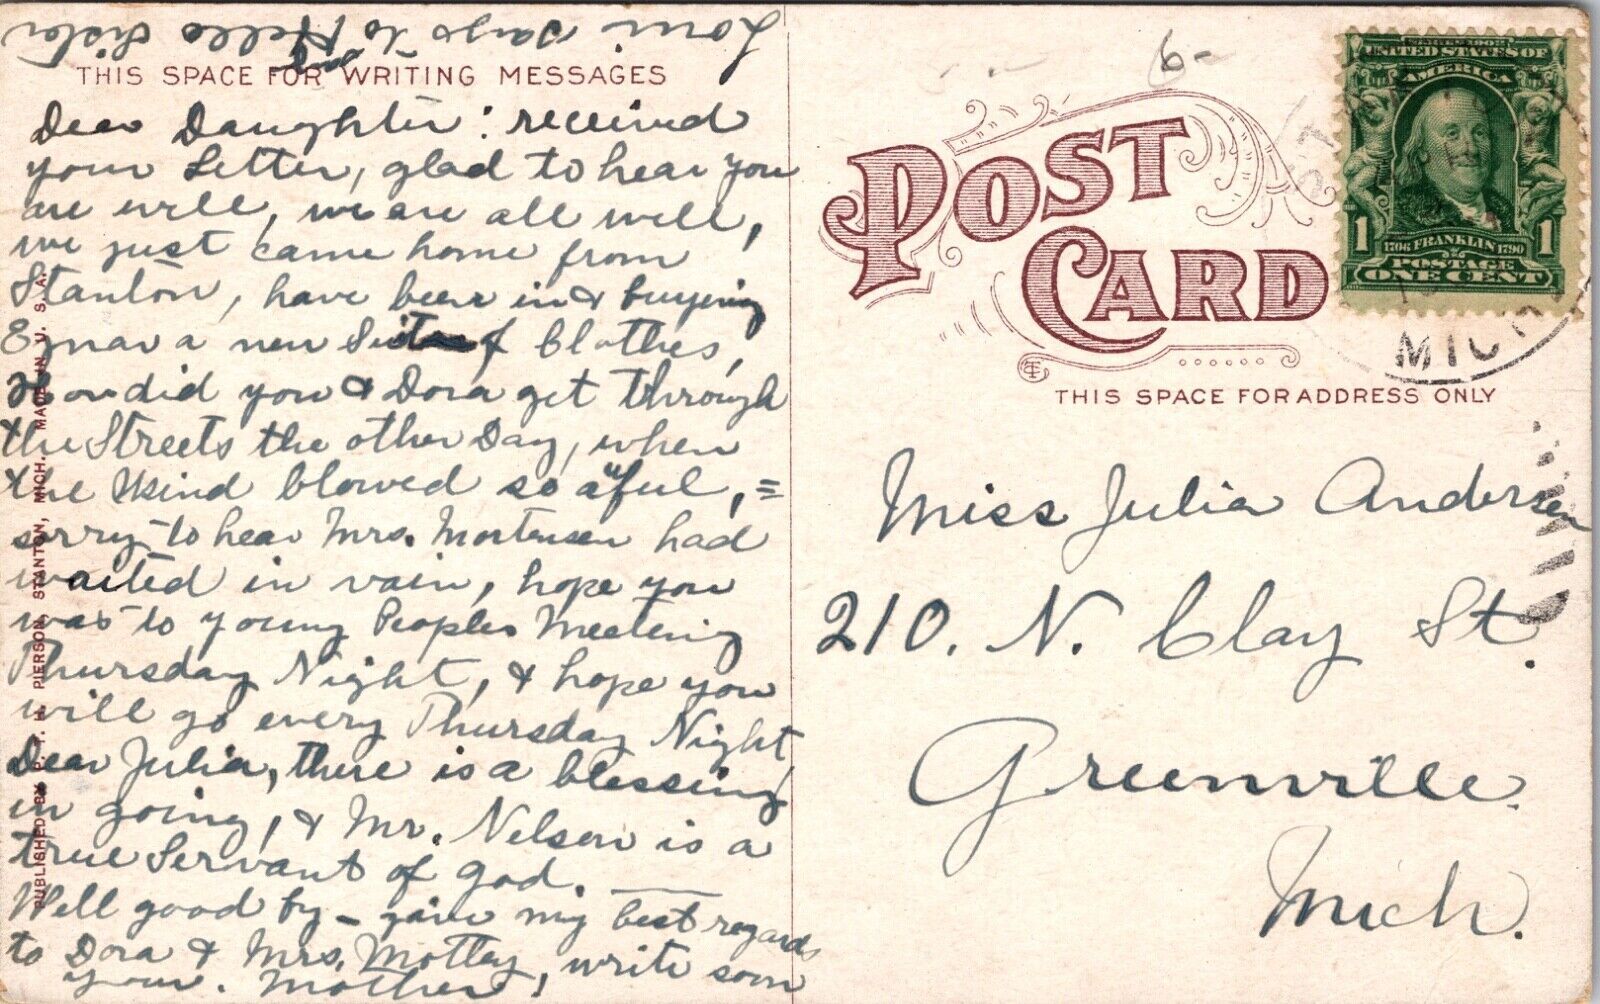 Loui says to Hello Sister
THIS SPACE FOR WRITING MESSAGES
Dear Daughter: received
your Letter, glad to hear you
are well, we are all well,
we just came home from
Stanton, have been in & buying
Ejnar a new Sute of Clothes,
How did you & Dora get through
the Streets the other Day, when
the Wind blowed so a"ful, =
sorry to hear Mrs. Mortensen had
waited in vain, hope you
was to young Peoples Meeting
Thursday Night, & hope you
will go every Thursday Night,
Dear Julia, there is a blessing
in going, & Mr. Nelson is a
true Servant of god.
Well good by – give my best regards
to Dora & Mrs. Motley, write soon
your. Mother!
PUBLISHED BY P. T. H. PIERSON, STANTON, MICH. MADE IN U. S. A.
6-
POST
CARD
THIS SPACE FOR ADDRESS ONLY
UNITED STATES OF
AMERICA
1706 FRANKLIN 1790
1 1
POSTAGE
ONE CENT
MICH
Miss Julia Andersen
210. N. Clay St.
Greenville.
Mich.